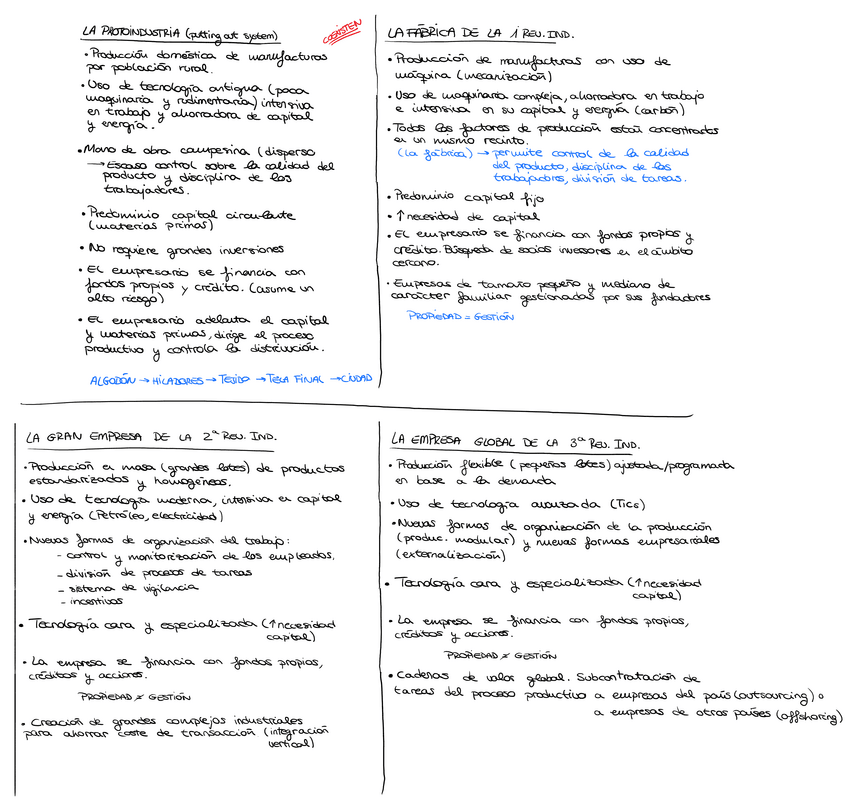 LA PROTOINDUSTRIA (putting out system)
COEXISTEN
• Producción doméstica de manufacturas
por población rural.
• Uso de tecnología antigua (poca
maquinaria y rudimentaria) intensiva
en trabajo y ahorradora de capital
y energía.
• Mano de obra campesina (disperso
→ Escaso control sobre la calidad del
producto y disciplina de los
trabajadores.
• Predominio capital circulante
(materias primas)
• No requiere grandes inversiones
• El empresario se financia con
fondos propios y crédito. (asume un
alto riesgo)
• El empresario adelanta el capital
y materias primas, dirige el proceso
productivo y controla la distribución.
ALGODÓN → HILADORES → TEJIDO → TELA FINAL → CIUDAD
LA FÁBRICA DE LA 1 REV. IND.
• Producción de manufacturas con uso de
máquina (mecanización)
• Uso de maquinaria compleja, ahorradora en trabajo
e intensiva en su capital y energía (carbón)
• Todos los factores de producción están concentrados
en un mismo recinto.
(la fábrica) → permite control de la calidad
del producto, disciplina de los
trabajadores, división de tareas.
• Predominio capital fijo
• ↑ necesidad de capital
• El empresario se financia con fondos propios y
crédito. Búsqueda de socios inversores en el ámbito
cercano.
• Empresas de tamaño pequeño y mediano de
carácter familiar gestionadas por sus fundadores
PROPIEDAD = GESTIÓN
LA GRAN EMPRESA DE LA 2ª REV. IND.
• Producción en masa (grandes lotes) de productos
estandarizados y homogéneos.
• Uso de tecnología moderna, intensiva en capital
y energía (Petróleo, electricidad)
• Nuevas formas de organización del trabajo:
- control y monitorización de los empleados.
- división de procesos de tareas
- sistema de vigilancia
- incentivos
• Tecnología cara y especializada (↑ necesidad
capital)
• La empresa se financia con fondos propios,
créditos y acciones.
PROPIEDAD ≠ GESTIÓN
• Creación de grandes complejos industriales
para ahorrar coste de transacción (integración
vertical)
LA EMPRESA GLOBAL DE LA 3ª REV. IND.
• Producción flexible (pequeños lotes) ajustada/programada
en base a la demanda
• Uso de tecnología avanzada (Tics)
• Nuevas formas de organización de la producción
(produc. modular) y nuevas formas empresariales
(externalización)
• Tecnología cara y especializada (↑ necesidad
capital)
• La empresa se financia con fondos propios,
créditos y acciones.
PROPIEDAD ≠ GESTIÓN
• Cadenas de valor global. Subcontratación de
tareas del proceso productivo a empresas del país (outsourcing) o
a empresas de otros países (offshoring)